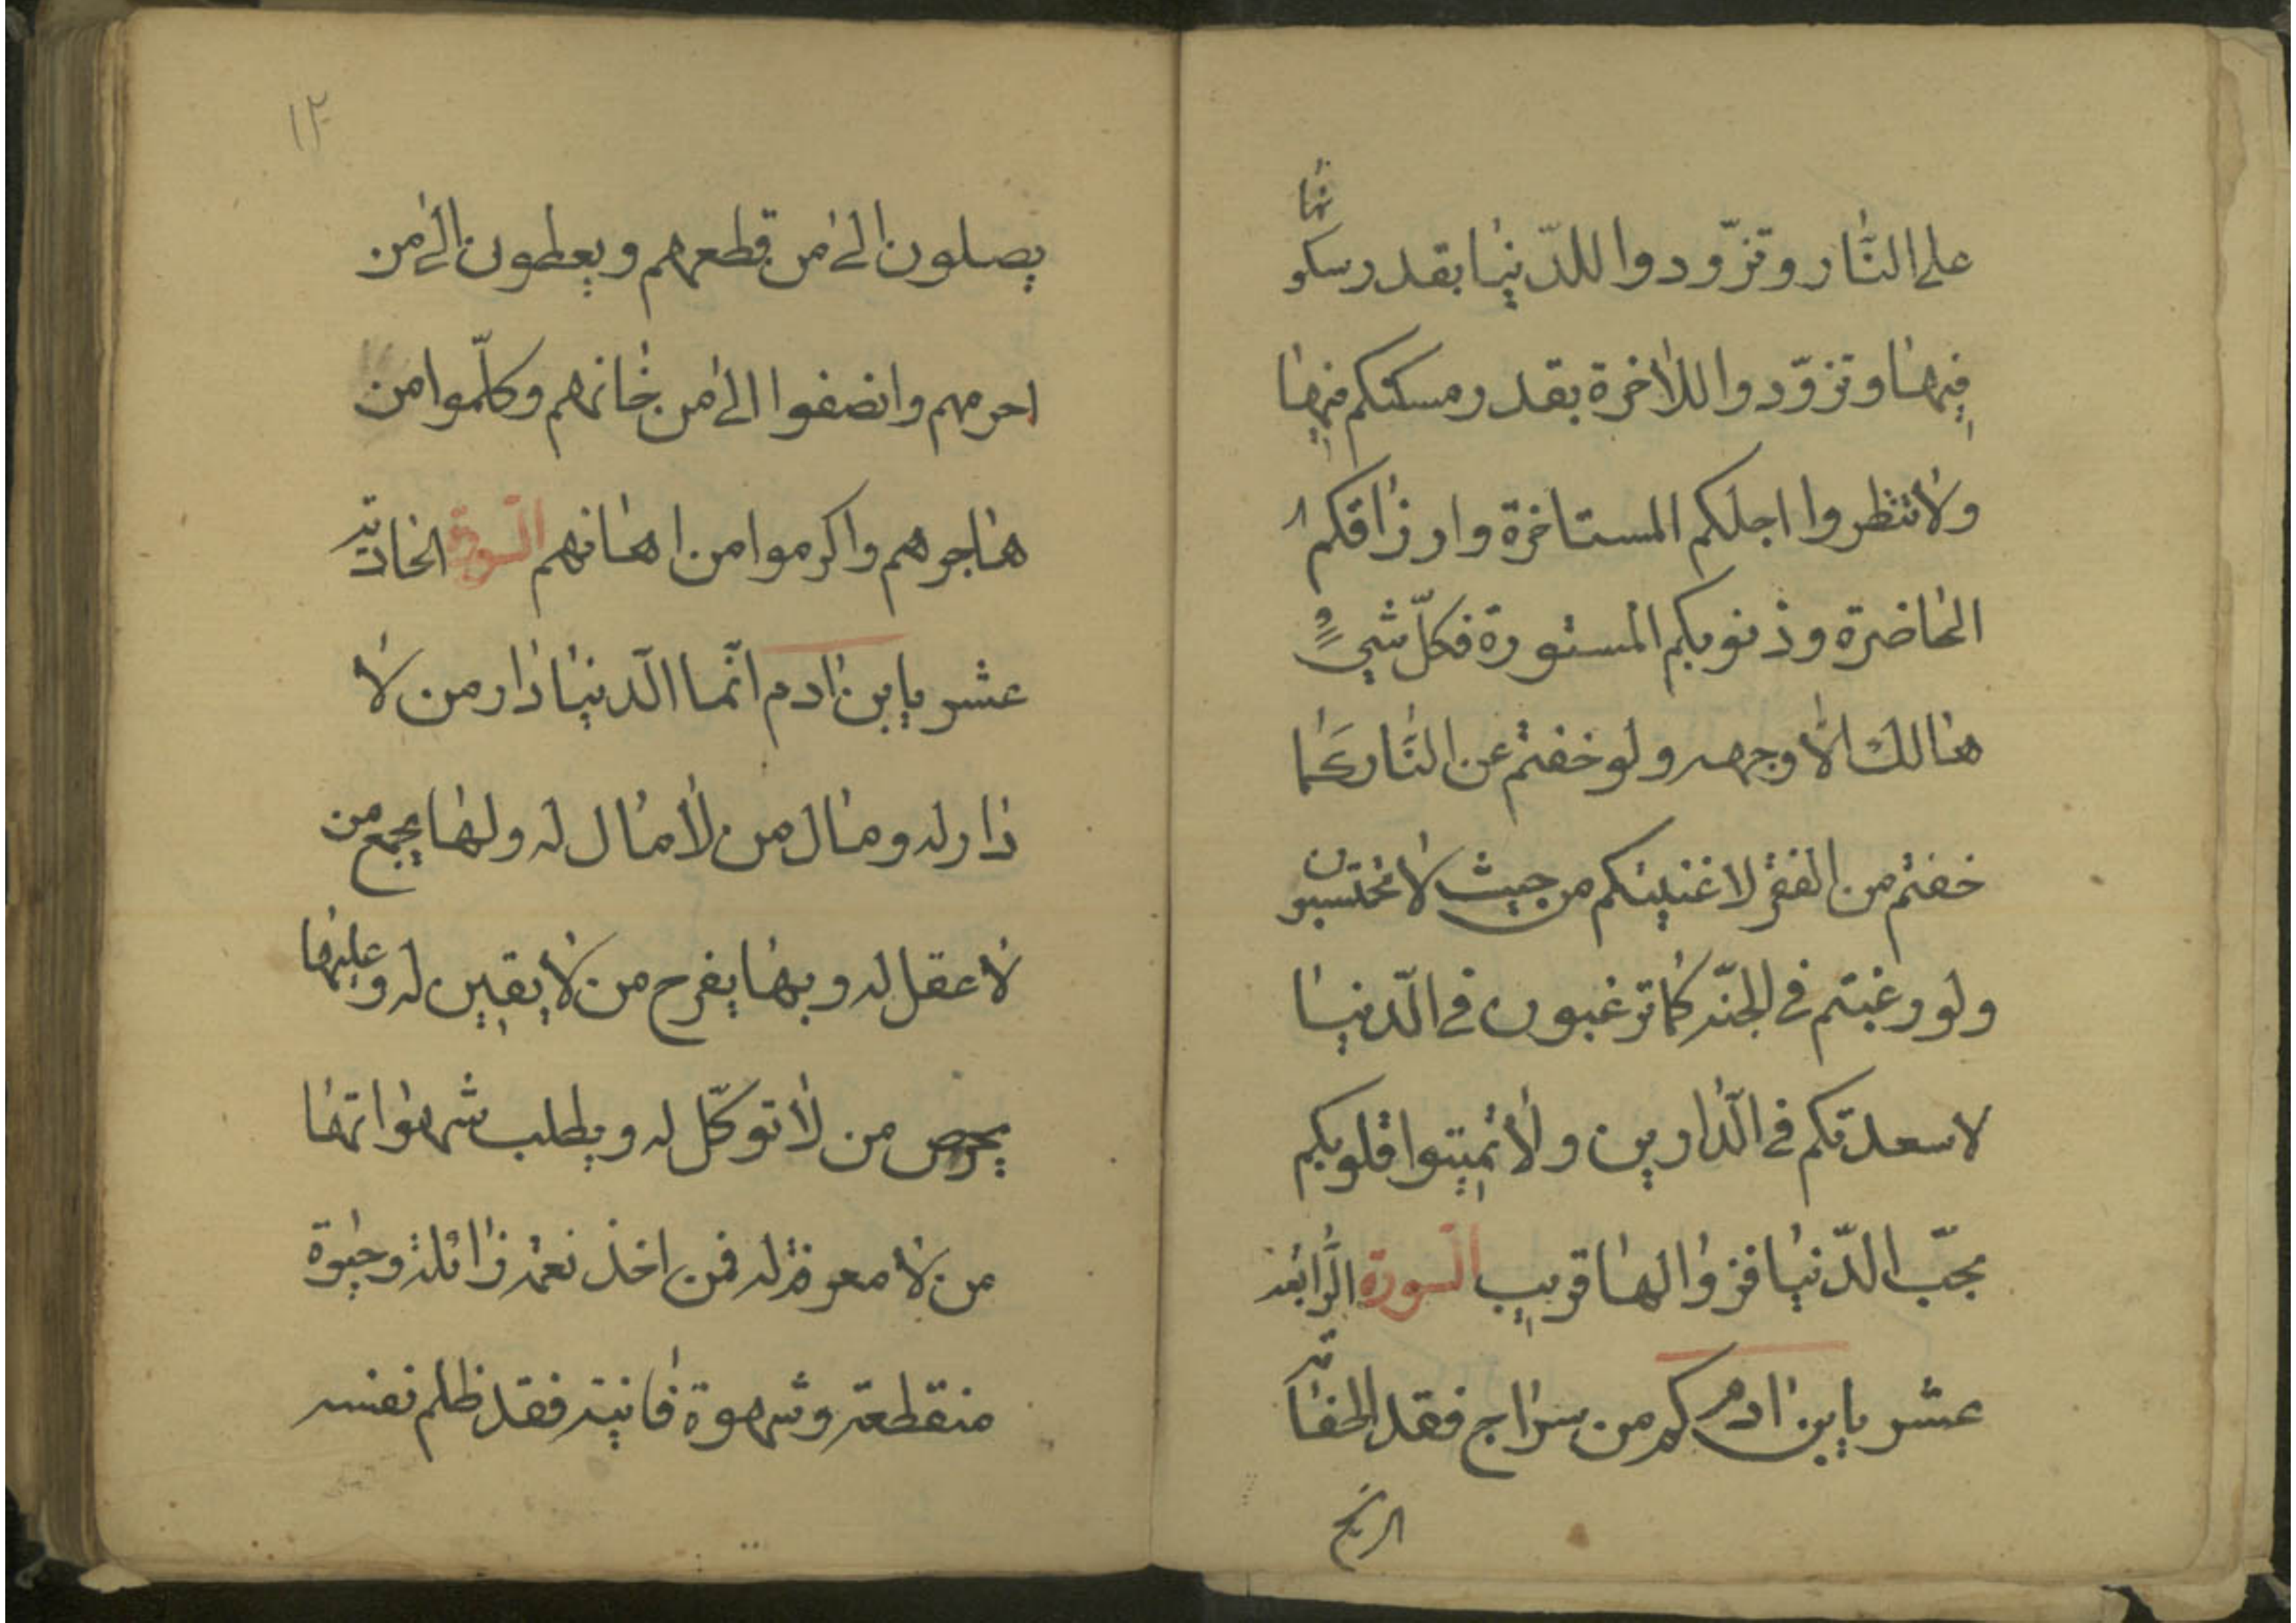 على النار وتزوّدوا للدّنيا بقدر سكونها
فيها وتزوّدوا للاخرة بقدر مسكنكم فيها
ولا تنظروا اجلكم المستاخرة وارزاقكم
الحاضرة وذنوبكم المستورة فكلّ شيءٍ
هالك الا وجهه ولو خفتم عن النّار كما
خفتم من الفقر لاغنيتكم من حيث لا تحتسبون
ولو رغبتم في الجنّة كما ترغبون في الدّنيا
لاسعدتكم في الدّارين ولا تميتوا قلوبكم
بحبّ الدّنيا فزوالها قريب السورة الرّابعة
عشر يابن ادم كم من سراج فقد اطفاته
الريح
١٢
يصلون الى من قطعهم ويعطون الى من
احرمهم وانصفوا الى من خانهم وكلّموا من
هاجروهم واكرموا من اهانهم السورة الحادية
عشر يابن ادم انّما الدّنيا دار من لا
دار له ومال من لا مال له ولها يجمع من
لا عقل له وبها يفرح من لا يقين له وعليها
يحرص من لا توكّل له ويطلب شهواتها
من لا معرفة له فمن اخذ نعمة زائلة وحيوة
منقطعة وشهوة فانية فقد ظلم نفسه